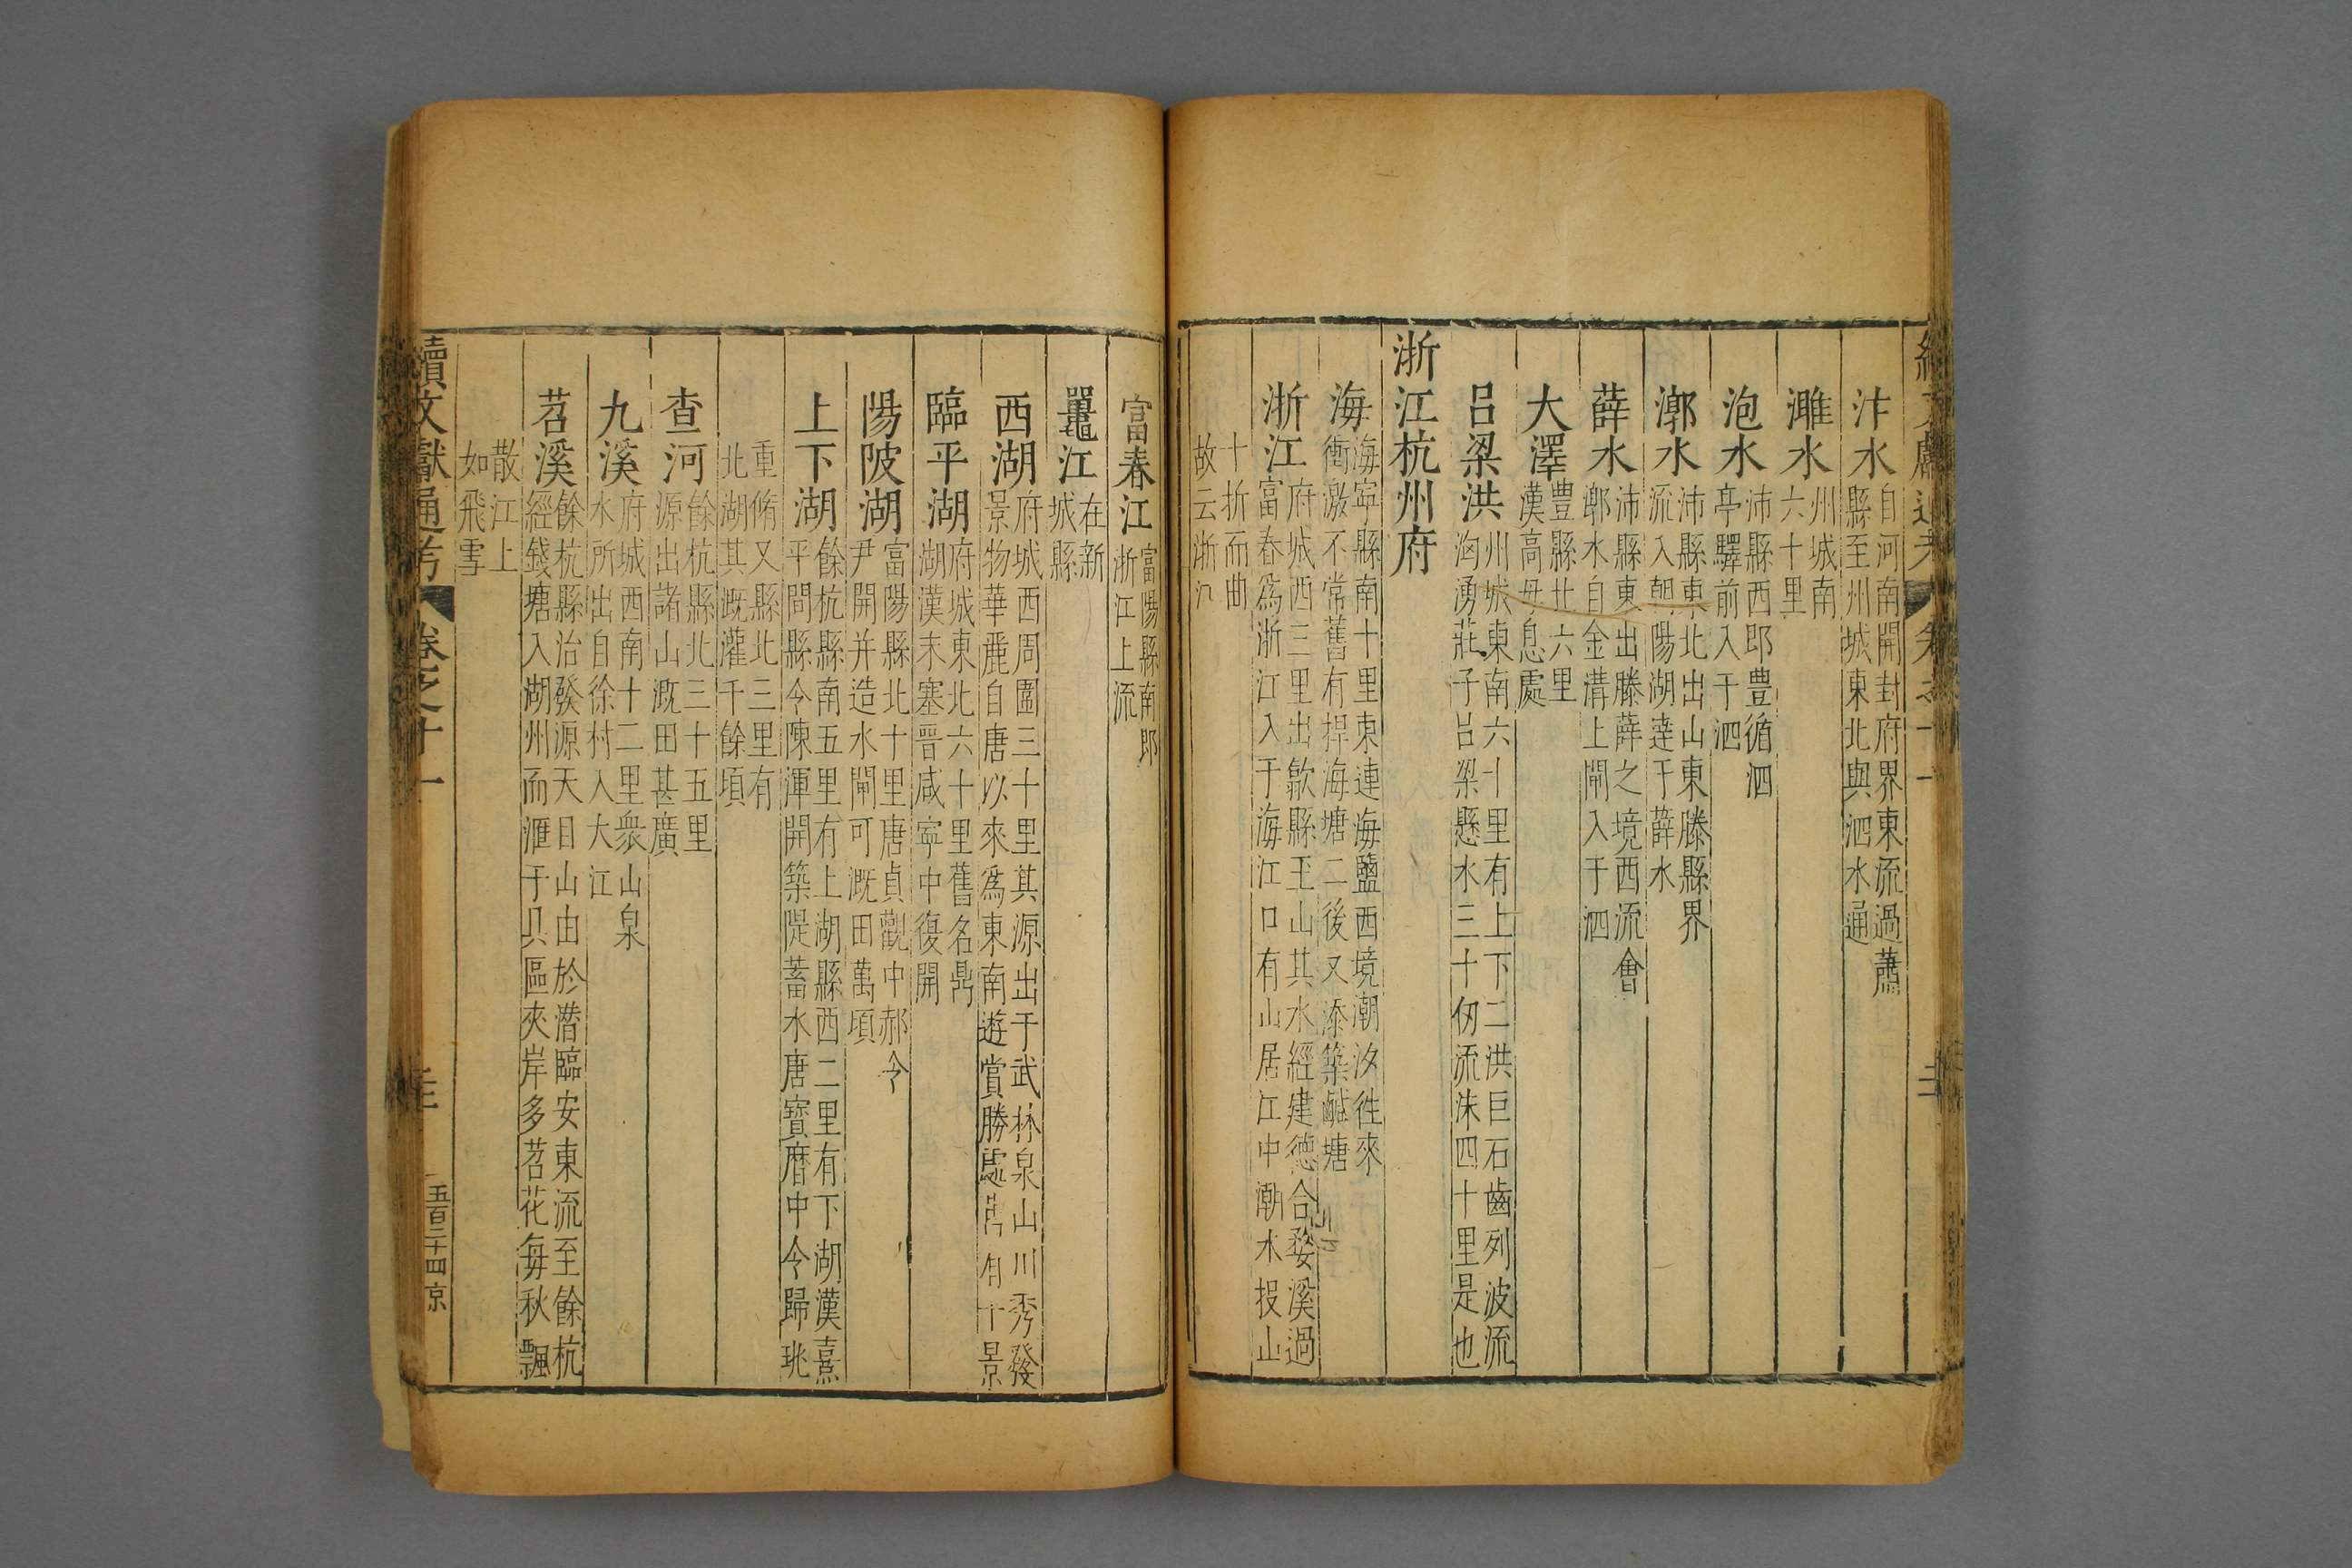 汴水 自河南開封府界東流過蕭
縣至州城東北與泗水通
濉水 州城南
六十里
泡水 沛縣西即豊循泗
亭驛前入于泗
漷水 沛縣東北出山東滕縣界
流入朝陽湖逹于薛水
薛水 沛縣東出滕薛之境西流會
鄌水自金溝上閘入于泗
大澤 豊縣北六里
漢高母息處
呂梁洪 州城東南六十里有上下二洪巨石齒列波流
洶湧莊子呂梁懸水三十仞流沫四十里是也
浙江杭州府
海 海寧縣南十里東連海鹽西境潮汝徃來
衝激不常舊有捍海塘二後又添築鹹塘
浙江 府城西三里出歙縣玉山其水經建德合婺溪過
富春爲浙江入于海江口有山居江中潮水投山
十折而曲
故云浙江
富春江 富陽縣南即
浙江上流
鼉江 在新
城縣
西湖 府城西周圍三十里其源出于武林泉山川秀發
景物華麗自唐以來爲東南遊賞勝處舊有十景
臨平湖 府城東北六十里舊名鼎
湖漢末塞晉咸寧中復開
陽陂湖 富陽縣北十里唐貞觀中郝令
尹開并造水閘可溉田萬頃
上下湖 餘杭縣南五里有上湖縣西二里有下湖漢熹
平間縣令陳渾開築隄蓄水唐寳曆中令歸珧
重脩又縣北三里有
北湖其溉灌千餘頃
查河 餘杭縣北三十五里
源出諸山溉田甚廣
九溪 府城西南十二里衆山泉
水所出自徐村入大江
苕溪 餘杭縣治發源天目山由於潛臨安東流至餘杭
經錢塘入湖州而滙于具區夾岸多苕花每秋飄
散江上
如飛雪
續文獻通考 卷之十一 五百二十四 京